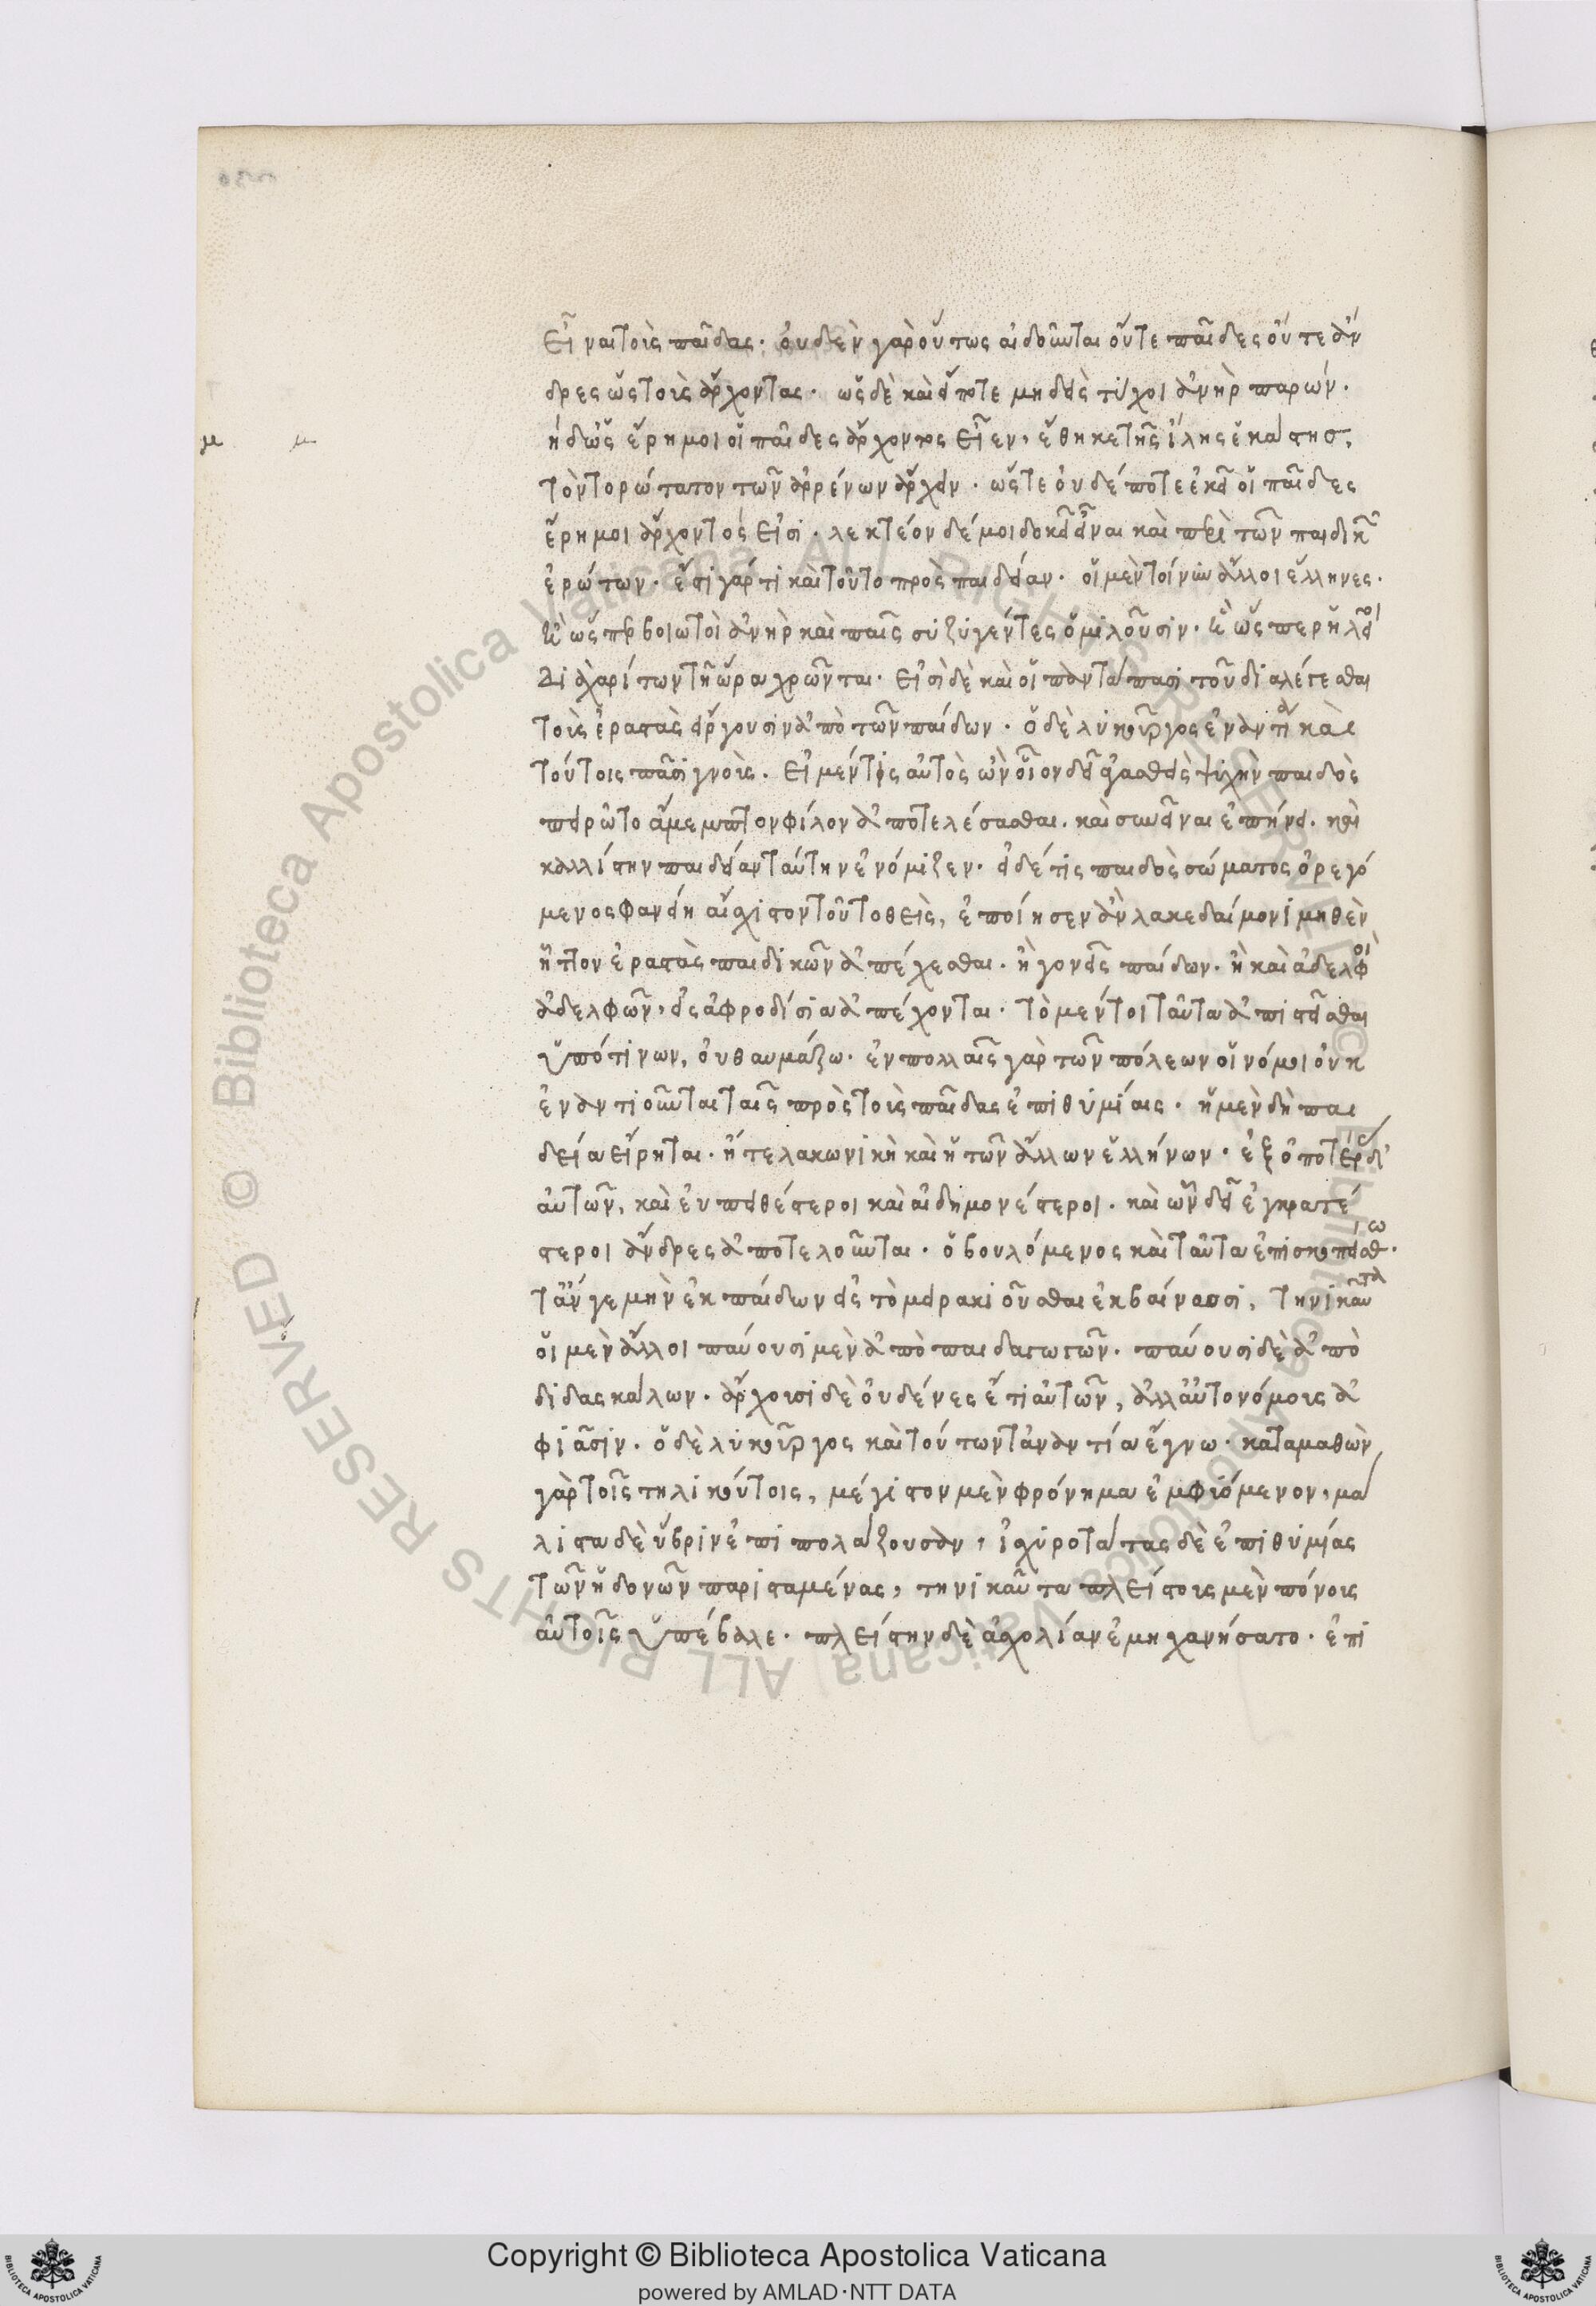 εἶναι τοὺς παῖδας. οὐδὲν γὰρ οὕτως αἰδοῦνται οὔτε παῖδες οὔτε ἄν
δρες ὡς τοὺς ἄρχοντας. ὡς δὲ καὶ εἴποτε μηδεὶς τύχοι ἀνὴρ παρών.
ἡδ' ὡς ἔρημοι οἱ παῖδες ἄρχοντος εἶεν, ἔθηκε τῆς ἴλης ἑκάστης,
τὸν τορώτατον τῶν ἀρρένων ἄρχειν. ὥστε οὐδέποτε ἐκεῖ οἱ παῖδες
ἔρημοι ἄρχοντός εἰσι. λεκτέον δέ μοι δοκεῖ εἶναι καὶ περὶ τῶν παιδικῶν
ἐρώτων. ἔστι γάρ τι καὶ τοῦτο πρὸς παιδείαν. οἱ μὲν τοίνυν ἄλλοι ἕλληνες.
ἢ ὥσπερ βοιωτοὶ ἀνὴρ καὶ παῖς συζυγέντες ὁμιλοῦσιν. ἢ ὥσπερ ἠλεῖοι
διὰ χαρίτων τῇ ὥρα χρῶνται. εἰσὶ δὲ καὶ οἳ παντάπασι τοῦ διαλέγεσθαι
τοὺς ἐραστὰς εἴργουσιν ἀπὸ τῶν παίδων. ὁ δὲ λυκοῦργος ἐναντία καὶ
τούτοις πᾶσι γνούς. εἰ μέν τις αὐτὸς ὢν οἷον δεῖ ἀγασθεὶς ψυχὴν παιδὸς
πειρῷτο ἄμεμπτον φίλον ἀποτελέσασθαι. καὶ συνεῖναι ἐπήνει. καὶ
καλλίστην παιδείαν ταύτην ἐνόμιζεν. εἰ δέ τις παιδὸς σώματος ὀρεγό
μενος φανείη αἴσχιστον τοῦτο θεὶς, ἐποίησεν ἂν λακεδαίμονι μηθὲν
ἧττον ἐραστὰς παιδικῶν ἀπέχεσθαι. ἢ γονεῖς παίδων. ἢ καὶ ἀδελφοὶ
ἀδελφῶν, εἰς ἀφροδίσια ἀπέχονται. τὸ μέντοι ταῦτα ἀπιστεῖσθαι
ὑπό τινων, οὐ θαυμάζω. ἐν πολλαῖς γὰρ τῶν πόλεων οἱ νόμοι οὐκ
ἐναντιοῦνται ταῖς πρὸς τοὺς παῖδας ἐπιθυμίαις. ἡ μὲν δὴ παι
δεία εἴρηται. ἥ τε λακωνικὴ καὶ ἡ τῶν ἄλλων ἑλλήνων. ἐξ ὁποτέρας δ'
αὐτῶν, καὶ εὐπειθέστεροι καὶ αἰδημονέστεροι. καὶ ὧν δεῖ ἐγκρατέ
στεροι ἄνδρες ἀποτελοῦνται. ὁ βουλόμενος καὶ ταῦτα ἐπισκοπείσθω.
τἄν γε μὴν ἐκ παίδων εἰς τὸ μειρακιοῦσθαι ἐκβαίνωσι, τηνικαῦτα
οἱ μὲν ἄλλοι παύουσι μὲν ἀπὸ παιδαγωγῶν. παύουσι δὲ ἀπὸ
διδασκάλων. ἄρχουσι δὲ οὐδένες ἔτι αὐτῶν, ἀλλ' αὐτονόμους ἀ
φιᾶσιν. ὁ δὲ λυκοῦργος καὶ τούτων τἀναντία ἔγνω. καταμαθὼν
γὰρ τοῖς τηλικούτοις, μέγιστον μὲν φρόνημα ἐμφυόμενον, μά
λιστα δὲ ὕβριν ἐπιπολάζουσαν, ἰσχυροτάτας δὲ ἐπιθυμίας
τῶν ἡδονῶν παρισταμένας, τηνικαῦτα πλείστους μὲν πόνους
αὐτοῖς ὑπέβαλε. πλείστην δὲ ἀσχολίαν ἐμηχανήσατο. ἐπὶ
Copyright © Biblioteca Apostolica Vaticana
powered by AMLAD·NTT DATA